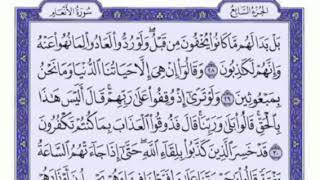 الجزء السابع سورة الأنعام
بَلْ بَدَا لَهُم مَّا كَانُوا يُخْفُونَ مِن قَبْلُ وَلَوْ رُدُّوا لَعَادُوا لِمَا نُهُوا عَنْهُ
وَإِنَّهُمْ لَكَاذِبُونَ ٢٨ وَقَالُوا إِنْ هِيَ إِلَّا حَيَاتُنَا الدُّنْيَا وَمَا نَحْنُ
بِمَبْعُوثِينَ ٢٩ وَلَوْ تَرَىٰ إِذْ وُقِفُوا عَلَىٰ رَبِّهِمْ قَالَ أَلَيْسَ هَٰذَا
بِالْحَقِّ قَالُوا بَلَىٰ وَرَبِّنَا قَالَ فَذُوقُوا الْعَذَابَ بِمَا كُنتُمْ تَكْفُرُونَ
٣٠ قَدْ خَسِرَ الَّذِينَ كَذَّبُوا بِلِقَاءِ اللَّهِ حَتَّىٰ إِذَا جَاءَتْهُمُ السَّاعَةُ